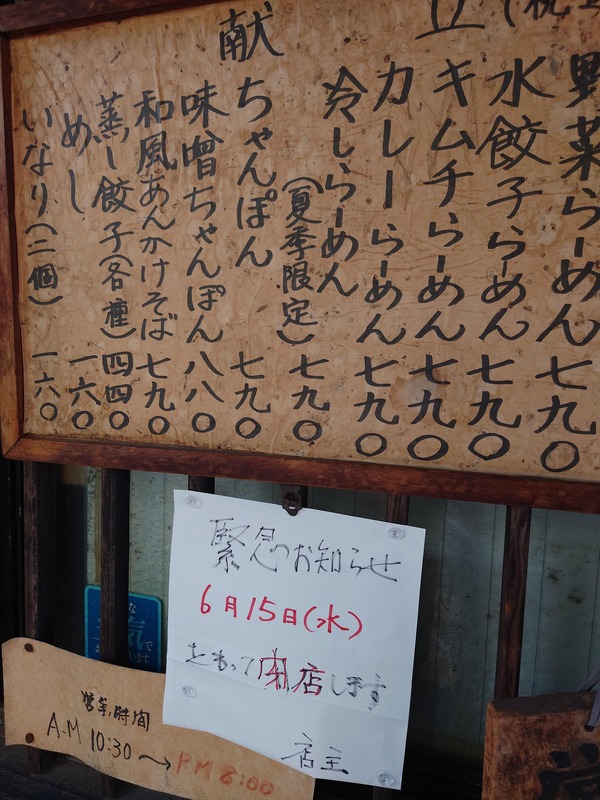 献立
野菜らーめん 七九〇
水餃子らーめん 七九〇
キムチらーめん 七九〇
カレーらーめん 七九〇
冷しらーめん
(夏季限定) 七九〇
ちゃんぽん 七九〇
味噌ちゃんぽん 八八〇
和風あんかけそば 七九〇
蒸し餃子(各種) 四四〇
めし 一六〇
いなり(二個) 一六〇
緊急のお知らせ
6月15日(水)
をもって閉店します
店主
営業時間
A.M 10:30 〜 PM 8:00